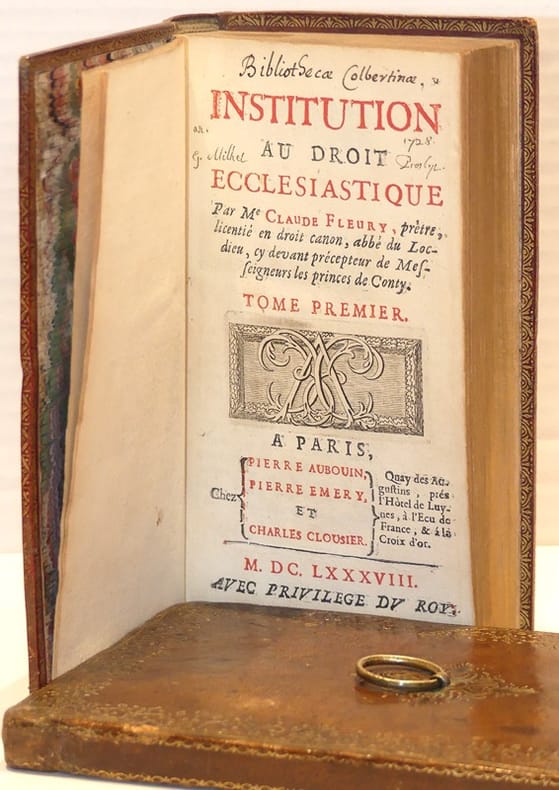 Bibliothecæ Colbertinæ,
INSTITUTION
1728
AU DROIT
G. Milhet
ECCLESIASTIQUE
Par Mᵉ CLAUDE FLEURY, prêtre,
licentié en droit canon, abbé du Loc-
dieu, cy devant précepteur de Mes-
seigneurs les princes de Conty.
TOME PREMIER.
A PARIS,
Chez
PIERRE AUBOUIN,
PIERRE EMERY,
ET
CHARLES CLOUSIER.
Quay des Au-
gustins, prés
l'Hôtel de Luy-
nes, à l'Ecu de
France, & à la
Croix d'or.
M. DC. LXXXVIII.
AVEC PRIVILEGE DV ROY.